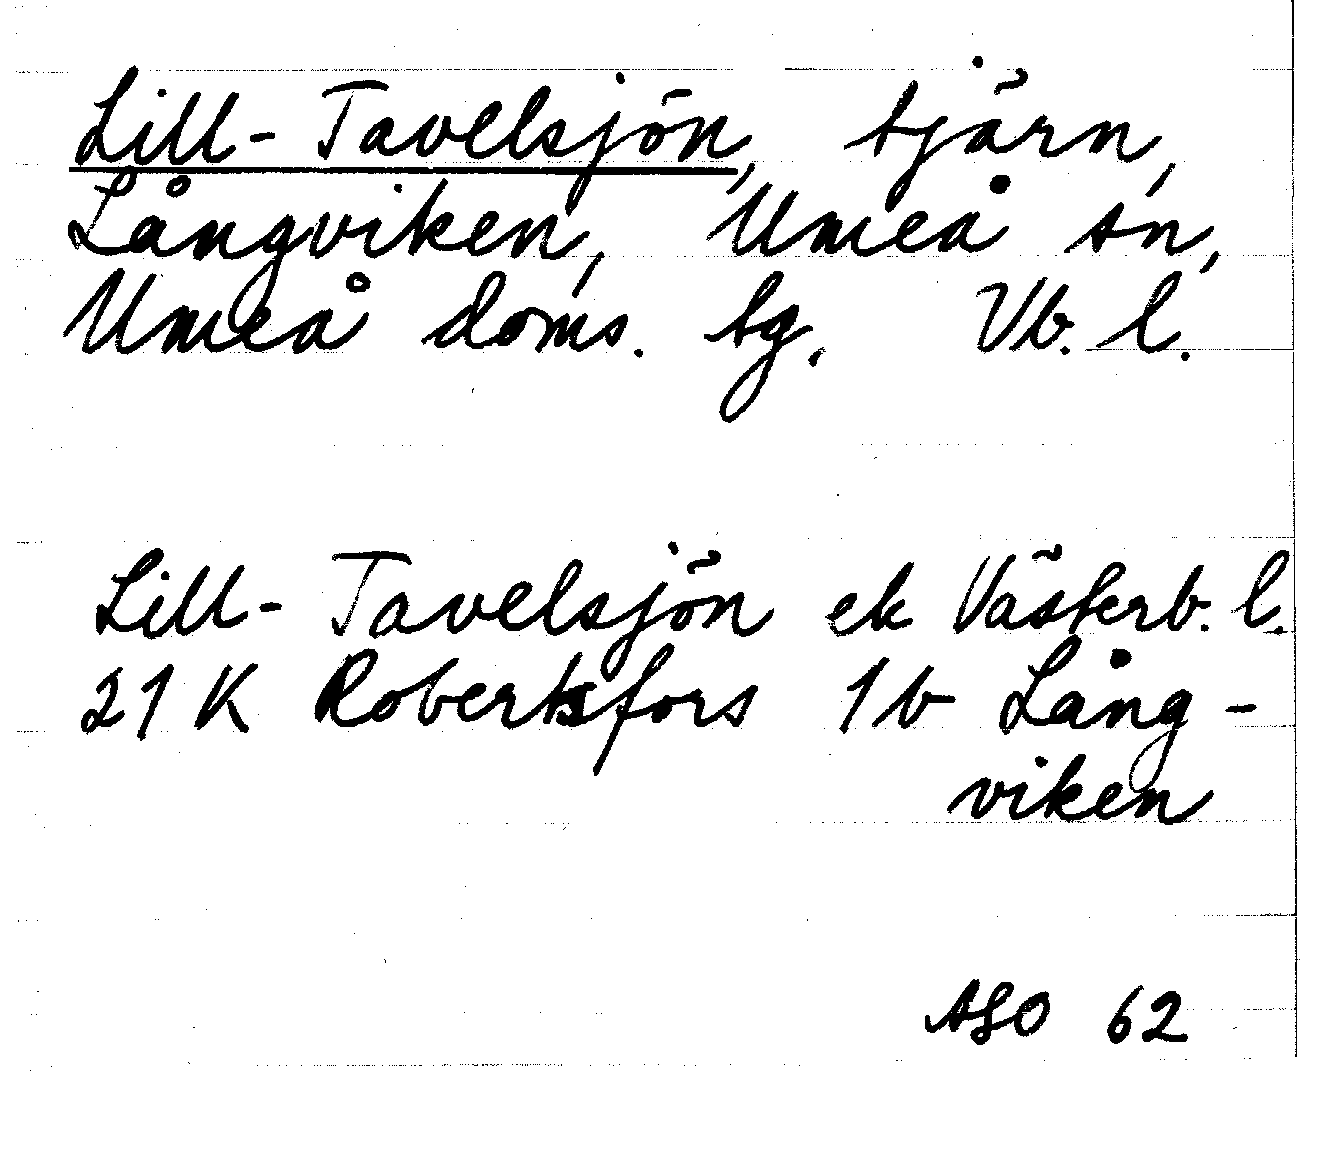 Lill-Tavelsjön, tjärn,
Långviken, Umeå sn,
Umeå doms. tg. Vb. l.
Lill-Tavelsjön ek Västerb. l.
21 K Robertsfors 1b Lång-
viken
ASO 62